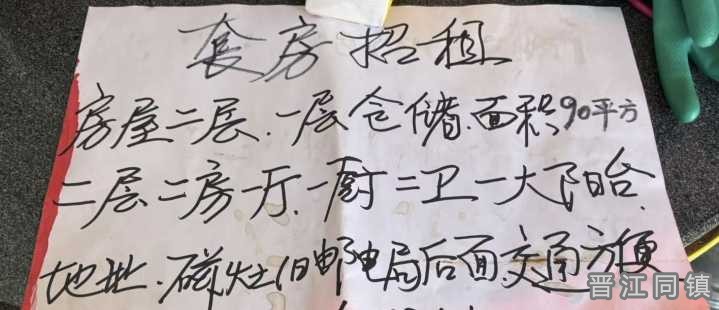 套房招租
房屋二层.一层仓储.面积90平方
二层二房一厅.一厨二卫一大阳台.
地址.磁灶旧邮电局后面.交通方便
晋江同镇